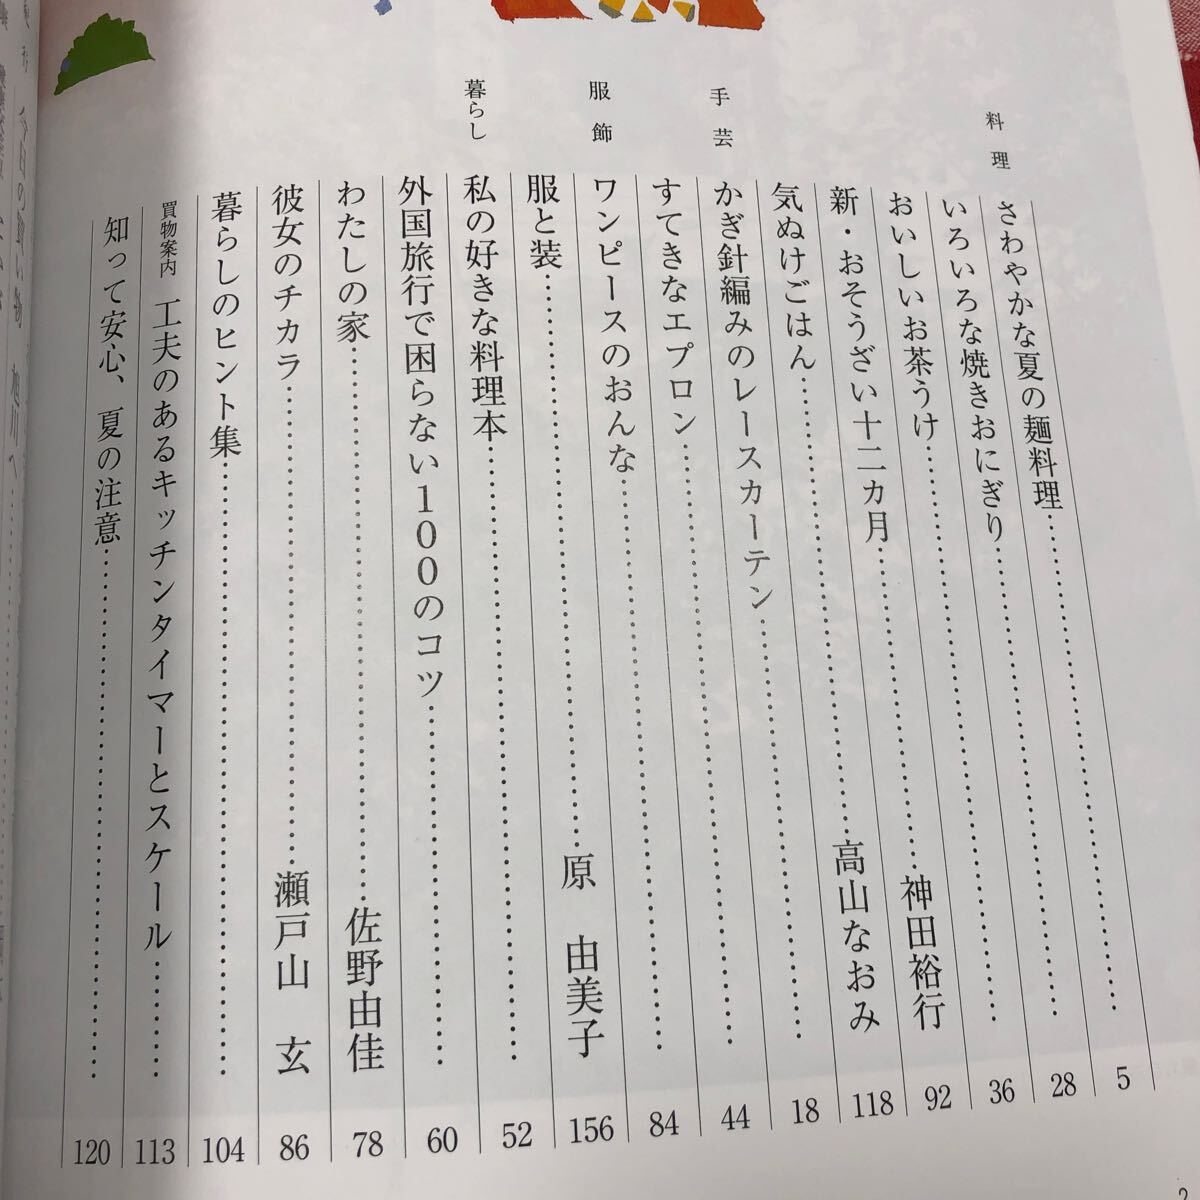 料理
さわやかな夏の麺料理……5
いろいろな焼きおにぎり……28
おいしいお茶うけ……36
新・おそうざい十二カ月……神田裕行 92
気ぬけごはん……高山なおみ 118
手芸
かぎ針編みのレースカーテン……18
すてきなエプロン……44
服飾
ワンピースのおんな……84
服と装……原 由美子 156
暮らし
私の好きな料理本……52
外国旅行で困らない100のコツ……60
わたしの家……佐野由佳 78
彼女のチカラ……瀬戸山 玄 86
暮らしのヒント集……104
買物案内 工夫のあるキッチンタイマーとスケール……113
知って安心、夏の注意……120
今日の買い物 旭川へ……